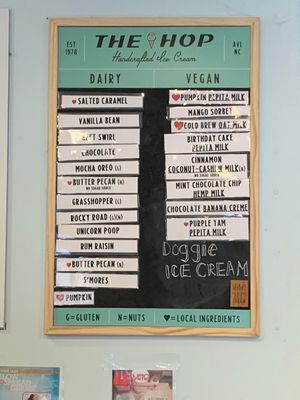 EST
1978
THE HOP
Handcrafted Ice Cream
AVL
NC
DAIRY
♥SALTED CARAMEL
VANILLA BEAN
SOFT SWIRL
CHOCOLATE
MOCHA OREO (G)
♥BUTTER PECAN (N)
NO SUGAR ADDED
GRASSHOPPER (G)
ROCKY ROAD (G)(N)
UNICORN POOP
RUM RAISIN
♥BUTTER PECAN (N)
S'MORES
♥PUMPKIN
VEGAN
♥PUMPKIN PEPITA MILK
MANGO SORBET
♥COLD BREW OAT MILK
BIRTHDAY CAKE
PEPITA MILK
CINNAMON
COCONUT-CASHEW MILK(N)
NO SUGAR ADDED
MINT CHOCOLATE CHIP
HEMP MILK
CHOCOLATE BANANA CREME
♥PURPLE YAM
PEPITA MILK
Doggie
ICE CREAM
G=GLUTEN N=NUTS ♥=LOCAL INGREDIENTS